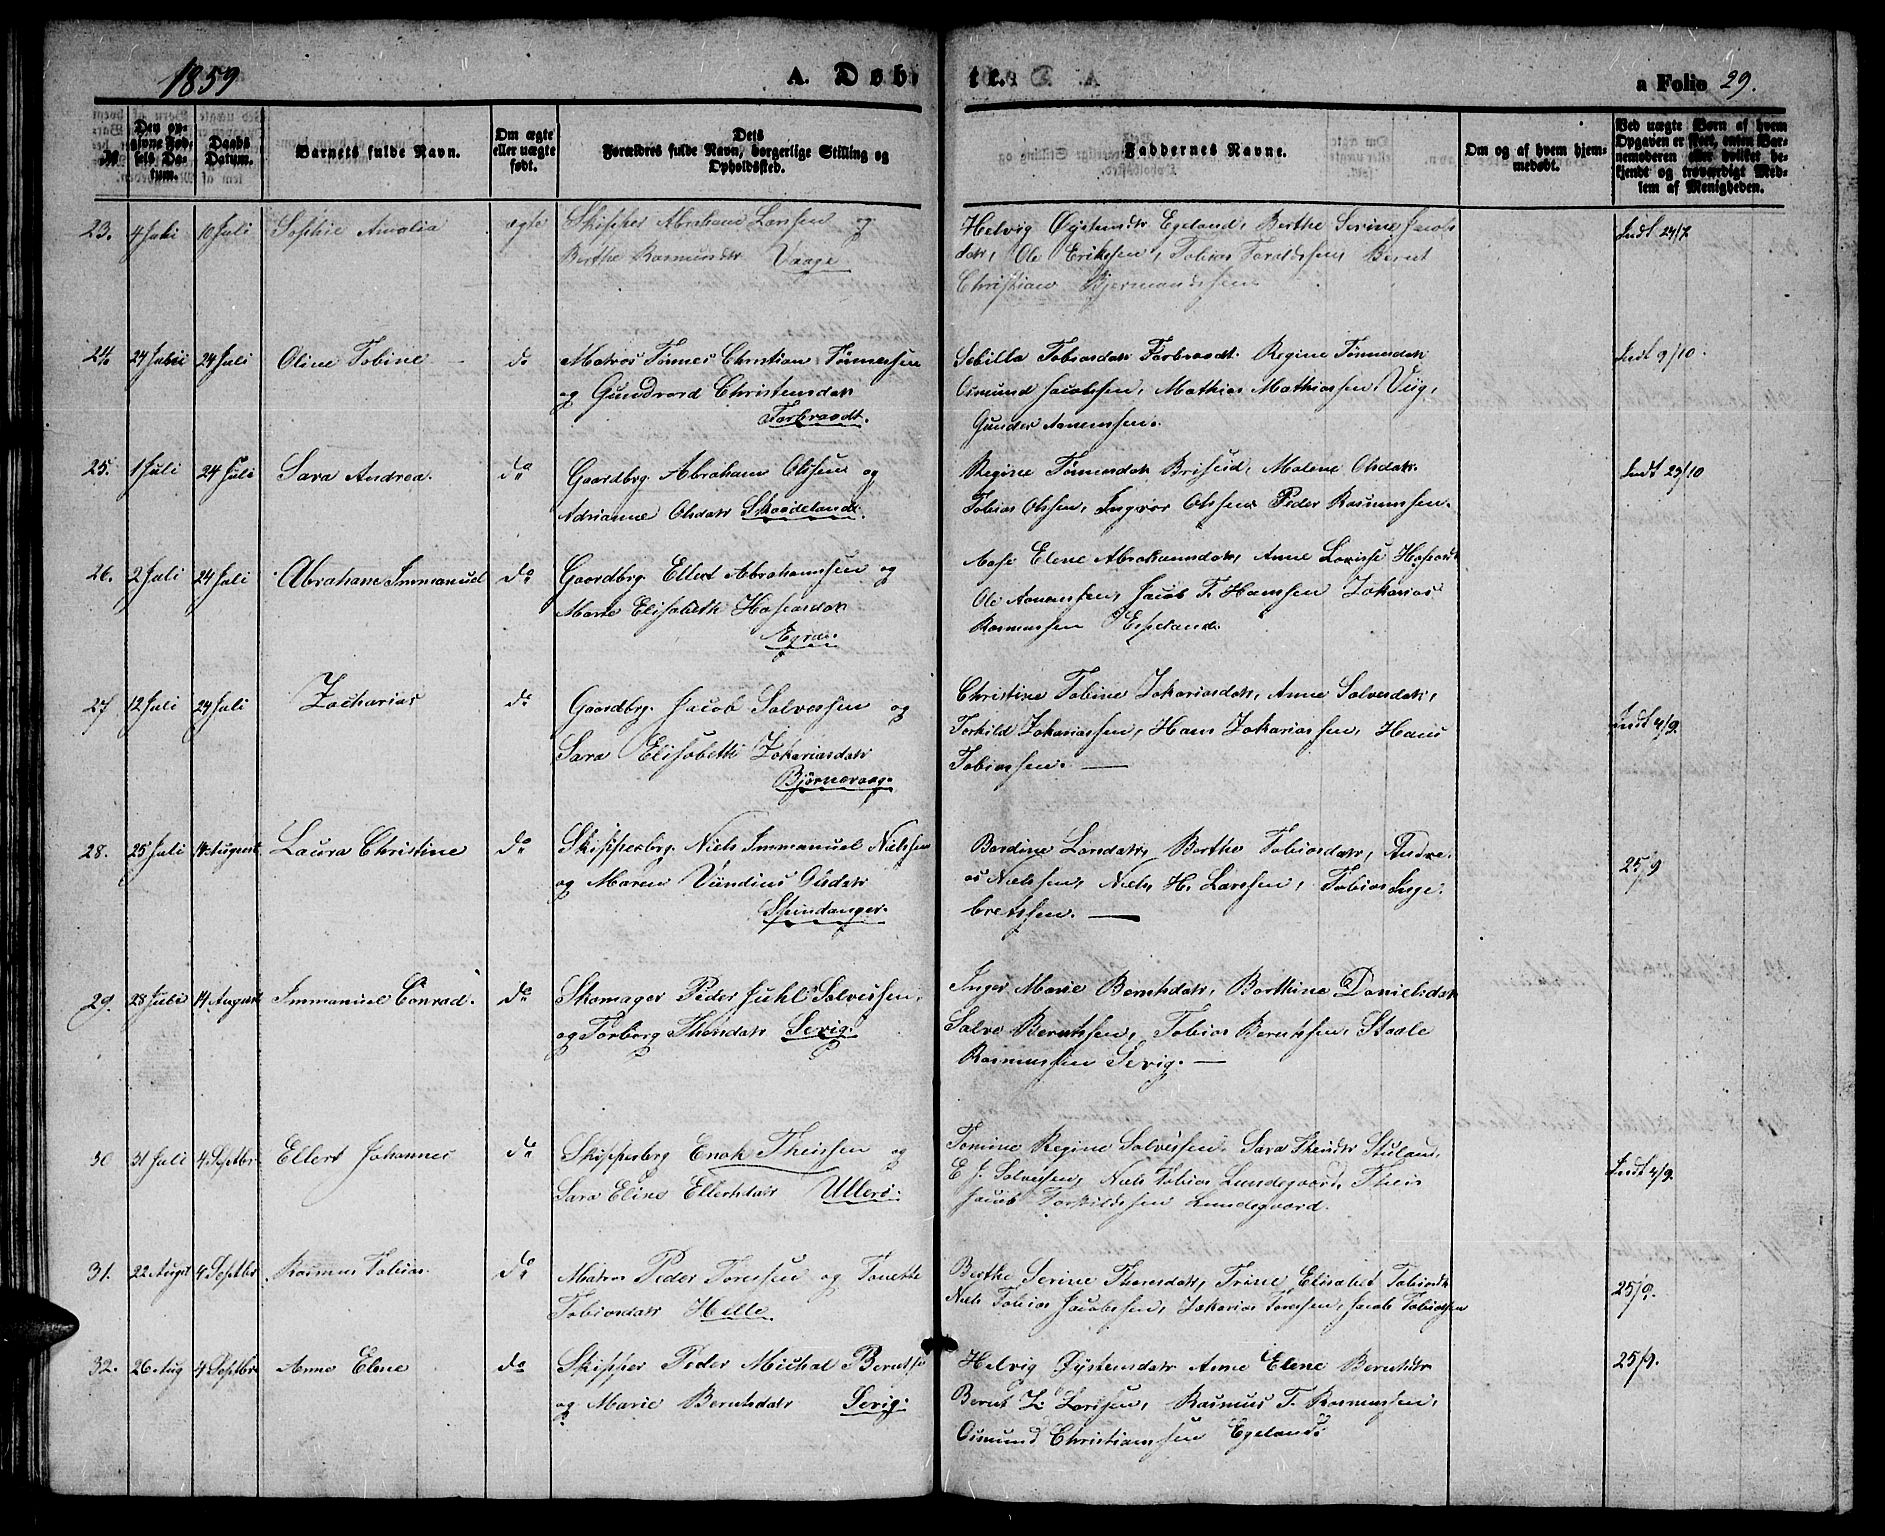 1859 A. Døbte. a Folio 29.
№ Den opgivne Fødsels Datum. Daabs Datum. Barnets fulde Navn. Om ægte eller uægte født. Dets Forældres fulde Navn, borgerlige Stilling og Opholdssted. Faddernes Navne. Om og af hvem hjemmedøbt. Ved uægte Børn af hvem Opgaven er skeet, enten Barnemoderen eller hvilket bekjendt og troværdigt Medlem af Menigheden.
23. 4 Juli 10 Juli Sophie Amalia ægte Skipper Abraham Larssen og
Berthe Rasmusdtr Vaage
Helvig Øystensdtr Egeland, Berthe Serine Jacobs
datr, Ole Erikssen, Tobias Bernt
Christian
Indt 24/7
24. 24 Juli Oline Tobine do Matros Tønnes Christian Tønnessen
og Gundvord Christensdatr
Farbrodt.
Sebilla Tobiasdatr Farbrodt. Regine Tønnesdatr
Osmund Jacobssen, Mathias Mathiassen,
Gunder Aanenssen.
Indt 9/10.
25. 1 Juli 24 Juli Sara Andrea. do Gaardbrg. Abraham Olssen og
Adrianne Olsdatr Skoodeland.
Regine Tønnesdatr Briseid, Malene Olsdatr
Tobias Olssen, Ingvor Olssen Peder Rasmussen.
Indt 23/10
26. 2 Juli 24 Juli Abrahane Immanuel do Gaardbrg. Ellert Abrahamssen og
Marie Elisabeth
Aase Elene Abrahamsdatr, Anne Lovisse
Ole Aanenssen, Jacob T. Hanssen Zakarias
Rasmussen Espeland.
27 12 Juli 24 Juli Zacharias do Gaardbrg. Jacob Salvessen og
Sara Elisabeth Zakariasdatr
Bjørnevaag.
Christine Tobine Zakariasdatr, Anne Salvesdatr,
Torkild Zakariassen, Hans Zakariassen, Hans
Tobiassen. —
Indt 4/9.
28. 25 Juli 14 August Laura Christine do Skipperbrg. Niels Immanuel Nielssen
og Maren Olsdatr
Spindanger.
Berthe Tobiasdatr, Andre-
as Nielssen, Niels H. Larssen, Tobias Inge-
bretssen. —
25/9
29. 28 Juli 14 August Immanuel Conrad. do Skomager Peder Juhl Salvessen,
og Torborg Sevig.
Inger Marie Berntsdatr, Barthine Danielsdatr
Salve Berntssen, Tobias Berntssen, Staale
Rasmussen Sevig. —
30 31 Juli 4 Septbr Ellert Johannes do Skipperbrg Enok Theissen og
Sara Eline Ellertsdatr Ullerø.
Tomine Regine Salvessen, Sara Theisdtr
E. J. Salvessen, Niels Tobias Lundegaard, Theis
Jacob Torkildssen Lundegaard.
Indt 4/9.
31. 22 August 4 Septbr Rasmus Tobias. do Matros Peder Toressen og Tonette
Tobiasdatr Helle.
Berthe Serine Thoresdatr, Trine Elisabet Tobiasdtr
Niels Tobias Jacobssen, Zakarias Toressen, Jacob Tobiassen
25/9.
32. 26 Aug 4 Septbr Anne Elene do Skipper Peder Michal Berntsen
og Marie Berntsdatr Sevig.
Helvig Øystensdatr Anne Elene Berntsdtr
Bernt Z. Larssen, Rasmus T. Rasmussen,
Osmund Christianssen Egeland.
25/9.